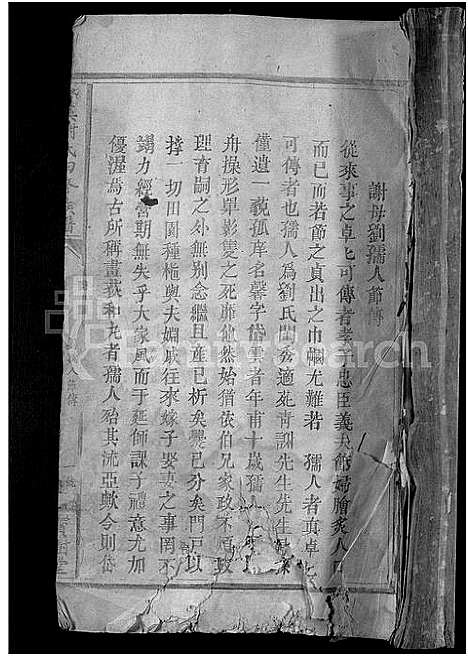 謝母劉孺人節傳
從來事之卓卓可傳者孝子忠臣義夫節婦膾炙人口
而已而若節之貞出之巾幗尤難若 孺人者真卓卓
可傳者也孺人為劉氏閨秀適堯青謝先生先生
僅遺一孤名馨字岱雲者年甫十歲孺人
舟操形單影隻之死靡他然始猶依伯兄家政不煩
理育嗣之外無別念繼且產已析矣爨已分矣門戶以
撐一切田園種植與夫姻戚往來嫁子娶妻之事罔不
竭力經營期無失乎大家風而于延師課子禮意尤加
優渥焉古所稱畫荻和丸者孺人殆其流亞歟今則岱